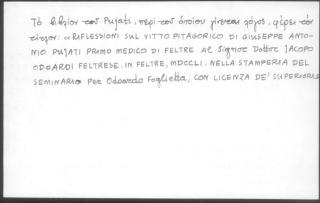 Τό βιβλίον τοῦ Pujati, περί τοῦ ὁποίου γίνεται λόγος, φέρει τόν
τίτλον: «RIFLESSIONI SUL VITTO PITAGORICO DI GIUSEPPE ANTO-
NIO PUJATI PRIMO MEDICO DI FELTRE AL Signor Dottor JACOPO
ODOARDI FELTRESE. IN FELTRE, MDCCLI. NELLA STAMPERIA DEL
SEMINARIO per Odoardo Foglietta, CON LICENZA DE' SUPERIORI»